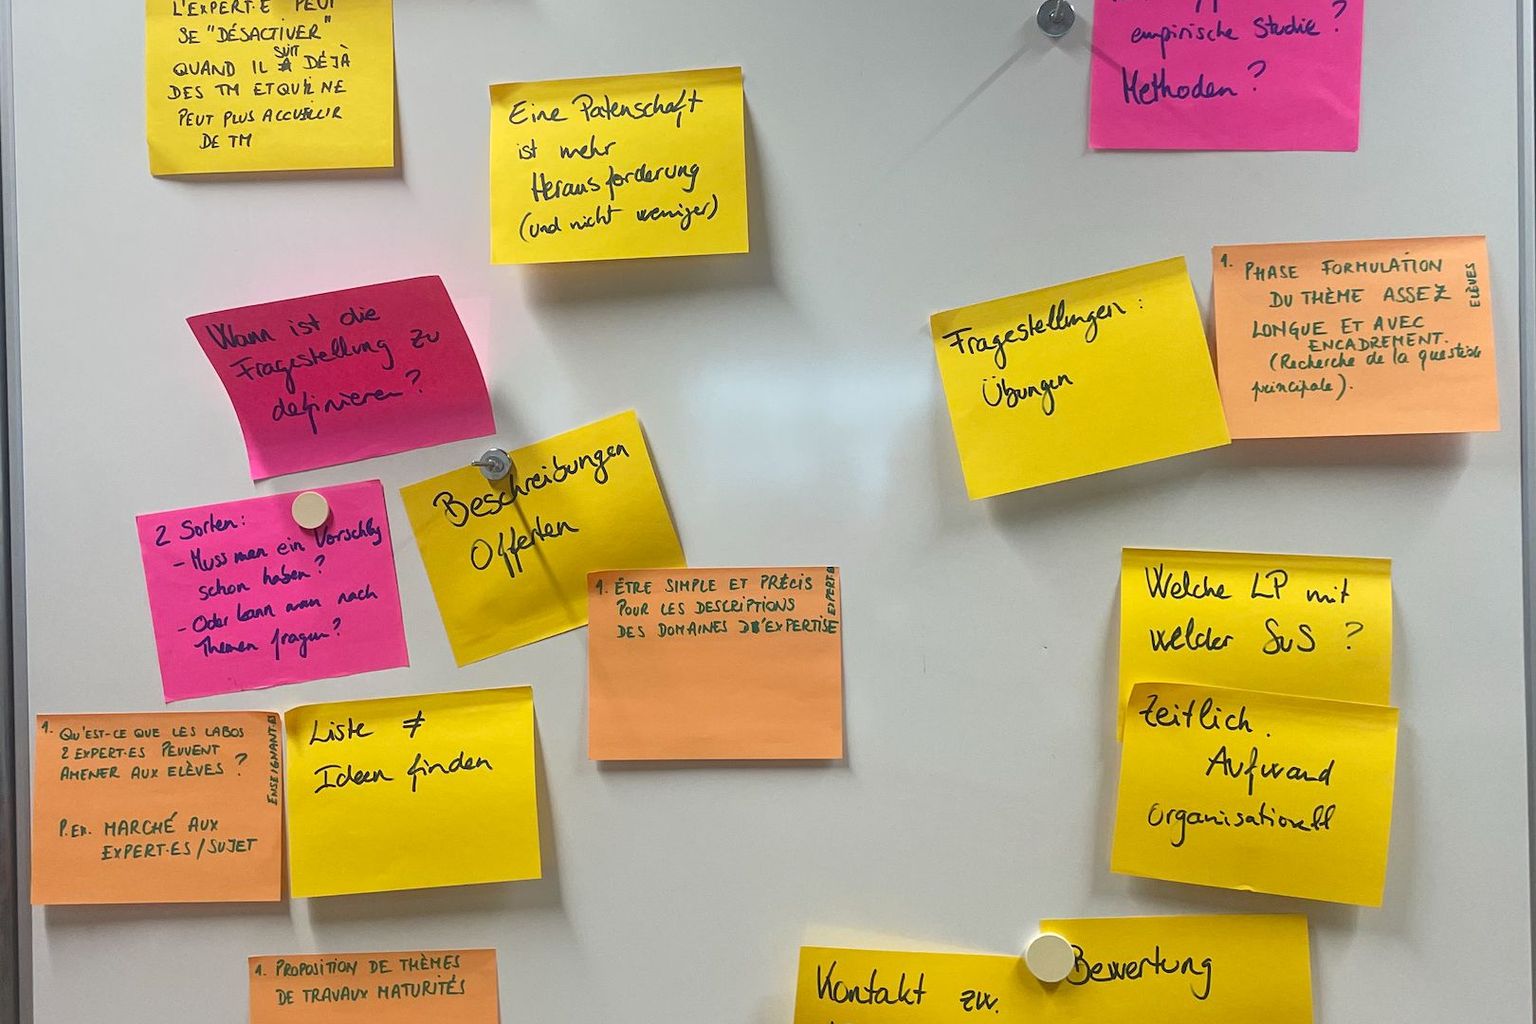 L'EXPERT·E PEUT
SE "DÉSACTIVER"
QUAND IL SUIT DÉJÀ
DES TM ET QU'IL NE
PEUT PLUS ACCUEILLIR
DE TM
Eine Patenschaft
ist mehr
Herausforderung
(und nicht weniger)
empirische Studie?
Methoden?
Wann ist die
Fragestellung zu
definieren?
Fragestellungen:
Übungen
1. PHASE FORMULATION
DU THÈME ASSEZ
LONGUE ET AVEC
ENCADREMENT.
(Recherche de la question
principale).
ELÈVES
2 Sorten:
- Muss man ein Vorschlag
schon haben?
- Oder kann man nach
Themen fragen?
Beschreibungen
Offerten
1. ÊTRE SIMPLE ET PRÉCIS
POUR LES DESCRIPTIONS
DES DOMAINES D'EXPERTISE
Welche LP mit
welcher SuS?
Zeitlich.
Aufwand
organisationell
1. QU'EST-CE QUE LES LABOS
2 EXPERT·ES PEUVENT
AMENER AUX ELÈVES?
P.EX. MARCHÉ AUX
EXPERT·ES / SUJET
Liste ≠
Ideen finden
1. PROPOSITION DE THÈMES
DE TRAVAUX MATURITÉS
Kontakt zw.
Bewertung